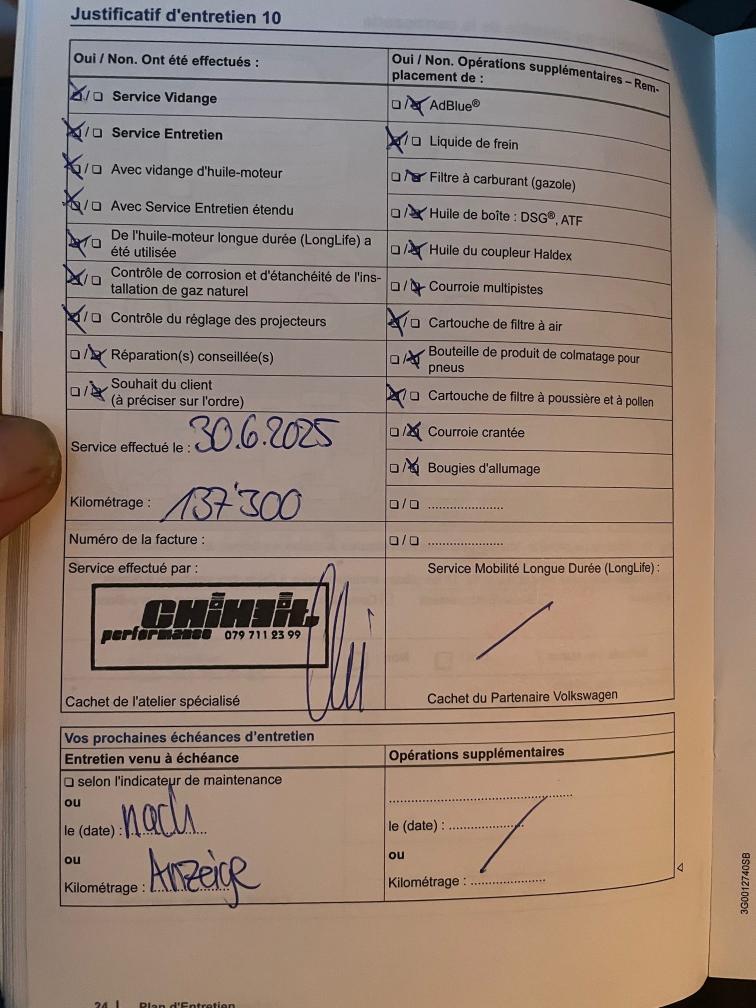 Justificatif d'entretien 10
Oui / Non. Ont été effectués :
☒/☐ Service Vidange
☒/☐ Service Entretien
☒/☐ Avec vidange d'huile-moteur
☒/☐ Avec Service Entretien étendu
☒/☐ De l'huile-moteur longue durée (LongLife) a
été utilisée
☒/☐ Contrôle de corrosion et d'étanchéité de l'ins-
tallation de gaz naturel
☒/☐ Contrôle du réglage des projecteurs
☐/☒ Réparation(s) conseillée(s)
☐/☒ Souhait du client
(à préciser sur l'ordre)
Service effectué le : 30.6.2025
Kilométrage : 137'300
Numéro de la facture :
Service effectué par :
performance 079 711 23 99
Cachet de l'atelier spécialisé
Oui / Non. Opérations supplémentaires – Rem-
placement de :
☐/☒ AdBlue®
☒/☐ Liquide de frein
☐/☒ Filtre à carburant (gazole)
☐/☒ Huile de boîte : DSG®, ATF
☐/☒ Huile du coupleur Haldex
☐/☒ Courroie multipistes
☒/☐ Cartouche de filtre à air
☐/☒ Bouteille de produit de colmatage pour
pneus
☒/☐ Cartouche de filtre à poussière et à pollen
☐/☒ Courroie crantée
☐/☒ Bougies d'allumage
☐/☐ ......................
☐/☐ ......................
Service Mobilité Longue Durée (LongLife) :
Cachet du Partenaire Volkswagen
Vos prochaines échéances d'entretien
Entretien venu à échéance
☐ selon l'indicateur de maintenance
ou
le (date) : nach
ou
Kilométrage : Anzeige
Opérations supplémentaires
......................................................
le (date) : ......................
ou
Kilométrage : ......................
3G0012740SB
24 | Plan d'Entretien